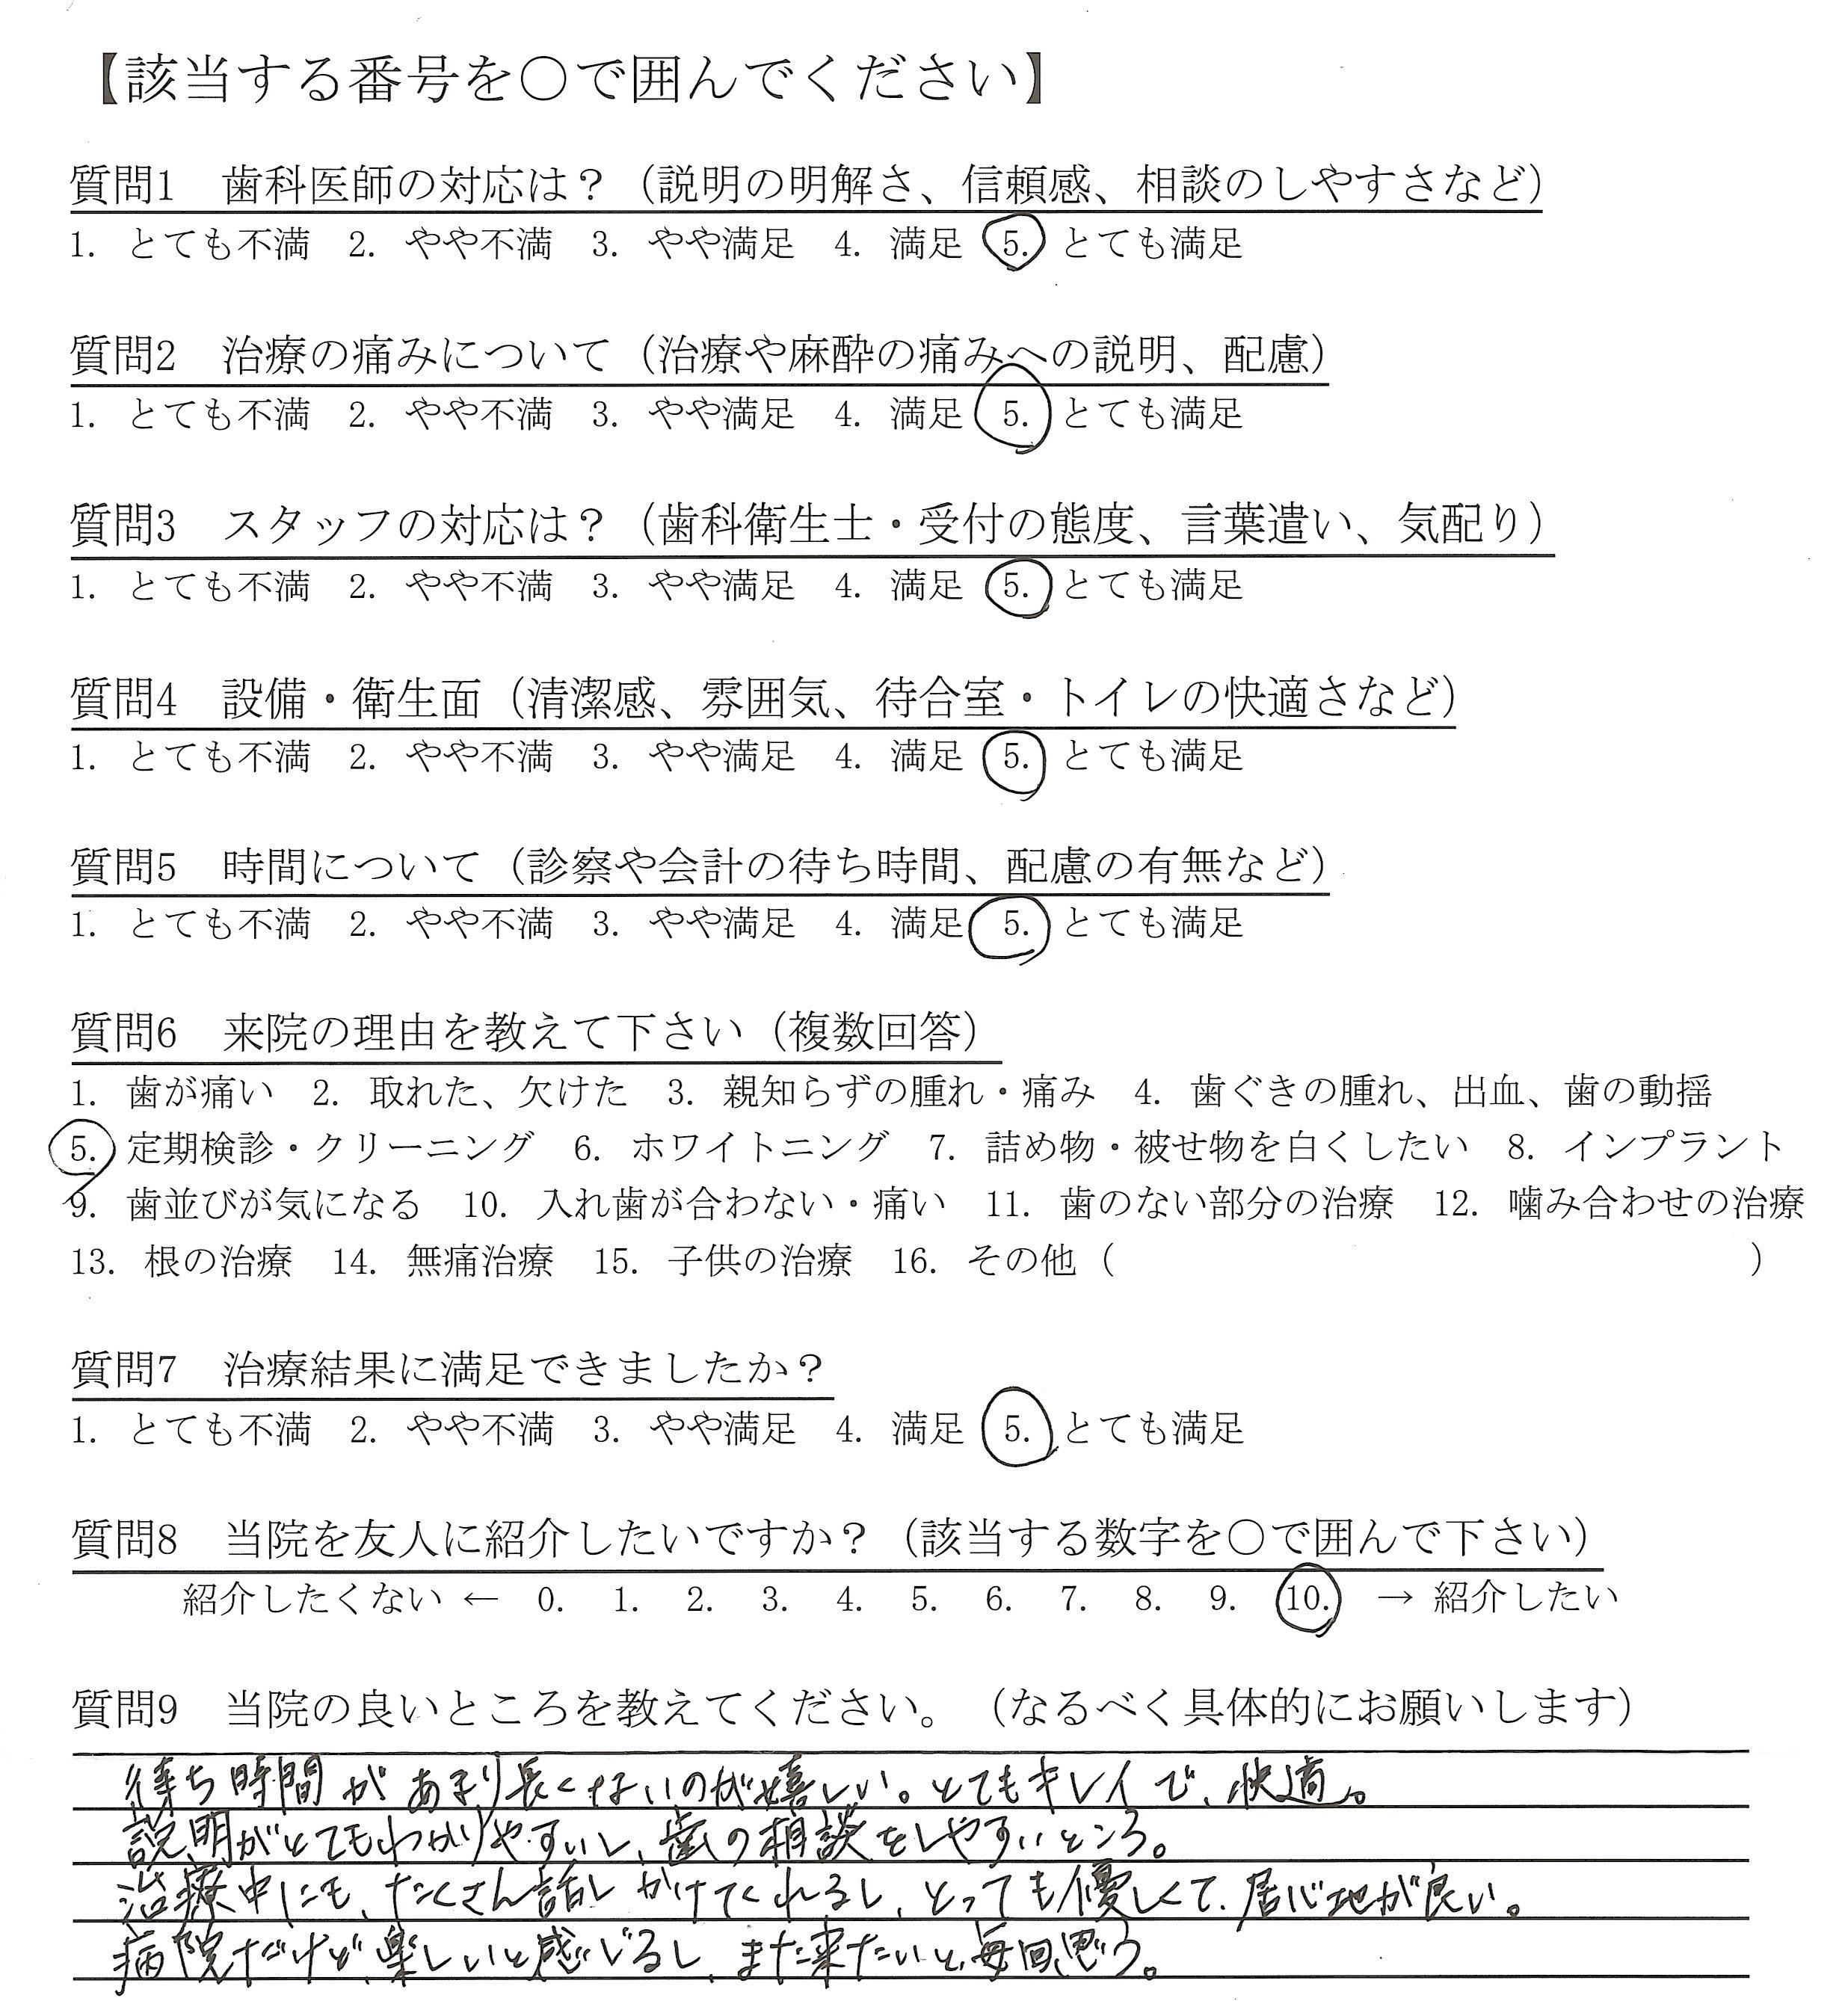 【該当する番号を○で囲んでください】
質問1　歯科医師の対応は？（説明の明解さ、信頼感、相談のしやすさなど）
1. とても不満　2. やや不満　3. やや満足　4. 満足　5. とても満足
質問2　治療の痛みについて（治療や麻酔の痛みへの説明、配慮）
1. とても不満　2. やや不満　3. やや満足　4. 満足　5. とても満足
質問3　スタッフの対応は？（歯科衛生士・受付の態度、言葉遣い、気配り）
1. とても不満　2. やや不満　3. やや満足　4. 満足　5. とても満足
質問4　設備・衛生面（清潔感、雰囲気、待合室・トイレの快適さなど）
1. とても不満　2. やや不満　3. やや満足　4. 満足　5. とても満足
質問5　時間について（診察や会計の待ち時間、配慮の有無など）
1. とても不満　2. やや不満　3. やや満足　4. 満足　5. とても満足
質問6　来院の理由を教えて下さい（複数回答）
1. 歯が痛い　2. 取れた、欠けた　3. 親知らずの腫れ・痛み　4. 歯ぐきの腫れ、出血、歯の動揺
5. 定期検診・クリーニング　6. ホワイトニング　7. 詰め物・被せ物を白くしたい　8. インプラント
9. 歯並びが気になる　10. 入れ歯が合わない・痛い　11. 歯のない部分の治療　12. 噛み合わせの治療
13. 根の治療　14. 無痛治療　15. 子供の治療　16. その他（　　　　　　　　　）
質問7　治療結果に満足できましたか？
1. とても不満　2. やや不満　3. やや満足　4. 満足　5. とても満足
質問8　当院を友人に紹介したいですか？（該当する数字を○で囲んで下さい）
紹介したくない ← 0. 1. 2. 3. 4. 5. 6. 7. 8. 9. 10. → 紹介したい
質問9　当院の良いところを教えてください。（なるべく具体的にお願いします）
待ち時間があまり長くないのが嬉しい。とてもキレイで、快適。
説明がとてもわかりやすいし、歯の相談をしやすいところ。
治療中にも、たくさん話しかけてくれるし、とっても優しくて、居心地が良い。
病院だけど、楽しいと感じるし、また来たいと毎回思う。